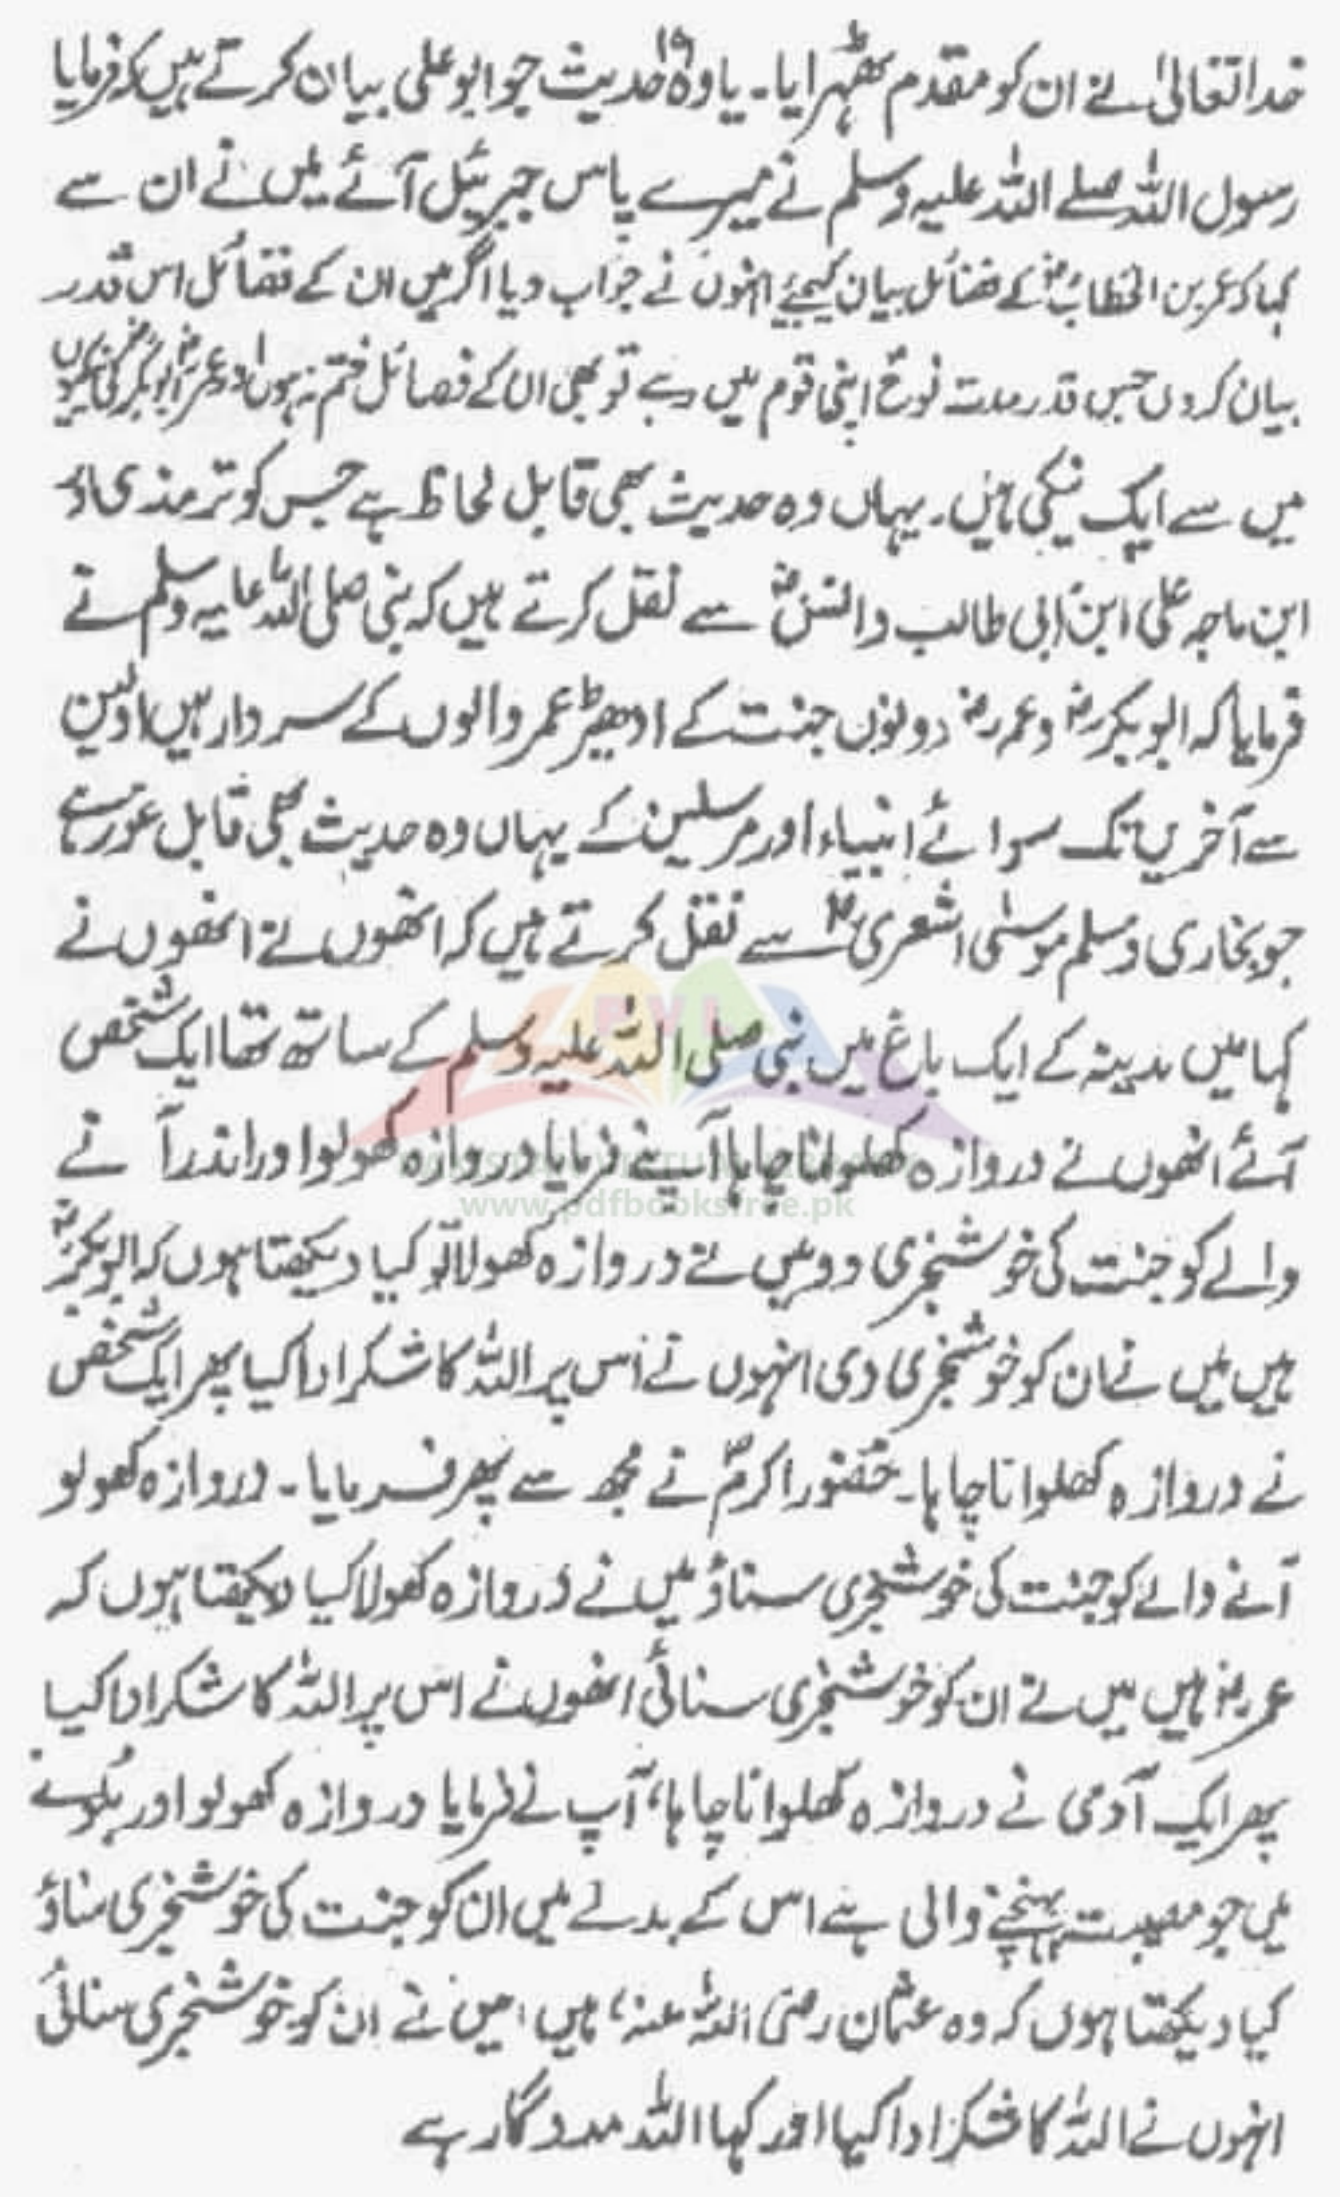 خداتعالیٰ نے ان کو مقدم ٹھہرایا۔ یا وہ حدیث جو ابو علی بیان کرتے ہیں کہ فرمایا
رسول اللہ صلے اللہ علیہ وسلم نے میرے پاس جبرئیل آئے میں نے ان سے
کہا کہ عمر بن الخطابؓ کے فضائل بیان کیجئے انہوں نے جواب دیا اگر میں ان کے فضائل اس قدر
بیان کروں جس قدر مدت نوحؑ اپنی قوم میں رہے تو بھی ان کے فضائل ختم نہ ہوں اور عمرؓ ابوبکرؓ کی نیکیوں
میں سے ایک نیکی ہیں۔ یہاں وہ حدیث بھی قابل لحاظ ہے جس کو ترمذی اور
ابن ماجہ علی ابن ابی طالب و انسؓ سے نقل کرتے ہیں کہ نبی صلی اللہ علیہ وسلم نے
فرمایا کہ ابوبکررضؓ وعمررضؓ دونوں جنت کے ادھیڑ عمر والوں کے سردار ہیں اولین
سے آخریں تک سوائے انبیاء اور مرسلین کے یہاں وہ حدیث بھی قابل غور ہے
جو بخاری و مسلم موسیٰ اشعریؓ سے نقل کرتے ہیں کہ انھوں نے انھوں نے
کہا میں مدینہ کے ایک باغ میں نبی صلی اللہ علیہ وسلم کے ساتھ تھا ایک شخص
آئے انھوں نے دروازہ کھلوانا چاہا آپ نے فرمایا دروازہ کھولوا ور اندر آ نے
والے کو جنت کی خوشخبری دو میں نے دروازہ کھولا تو کیا دیکھتا ہوں کہ ابوبکرؓ
ہیں میں نے ان کو خوشخبری دی انہوں نے اس پر اللہ کا شکر ادا کیا پھر ایک شخص
نے دروازہ کھلوانا چاہا۔ حضور اکرمؐ نے مجھ سے پھر فرمایا۔ دروازہ کھولو
آنے والے کو جنت کی خوشخبری سناؤ میں نے دروازہ کھولا کیا دیکھتا ہوں کہ
عمررضؓ ہیں میں نے ان کو خوشخبری سنائی انھوں نے اس پر اللہ کا شکر ادا کیا
پھر ایک آدمی نے دروازہ کھلوانا چاہا، آپ نے فرمایا دروازہ کھولو اور
میں جو مصیبت پہنچنے والی ہے اس کے بدلے میں ان کو جنت کی خوشخبری سناؤ
کیا دیکھتا ہوں کہ وہ عثمان رضی اللہ عنہ، ہیں میں نے ان کو خوشخبری سنائی
انہوں نے اللہ کا شکر ادا کیا اور کہا اللہ مددگار ہے
PVL
www.pdfbooksfree.pk